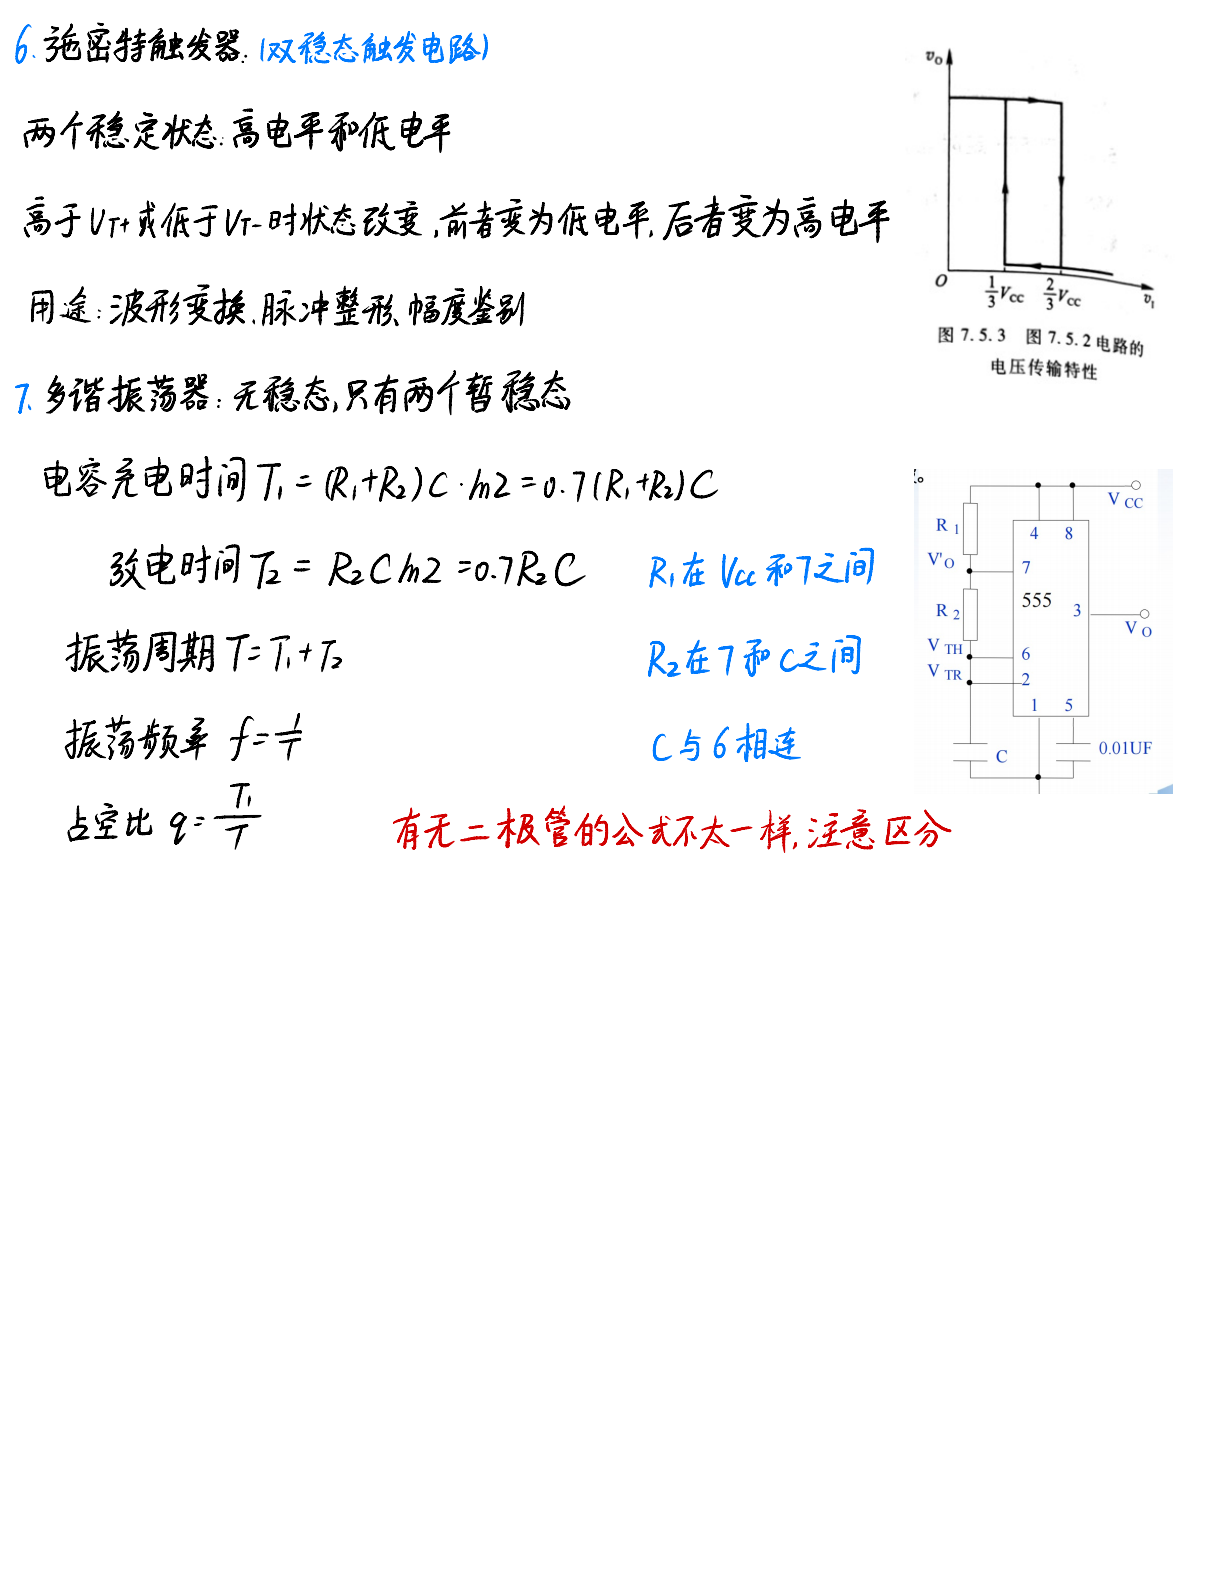 6. 施密特触发器. (双稳态触发电路)
两个稳定状态: 高电平和低电平
高于VT+或低于VT-时状态改变,前者变为低电平,后者变为高电平
用途: 波形变换、脉冲整形、幅度鉴别
vO
O
1/3 VCC 2/3 VCC vI
图 7.5.3 图 7.5.2 电路的
电压传输特性
7. 多谐振荡器: 无稳态,只有两个暂稳态
电容充电时间 T₁ = (R₁+R₂)C·ln2 = 0.7(R₁+R₂)C
放电时间 T₂ = R₂Cln2 = 0.7R₂C
振荡周期 T = T₁+T₂
振荡频率 f = 1/T
占空比 q = T₁/T
R₁在Vcc和7之间
R₂在7和C之间
C与6相连
有无二极管的公式不太一样,注意区分
。
V CC
R 1
4 8
V'O
7
555
R 2
3
V O
V TH
6
V TR
2
1 5
C
0.01UF